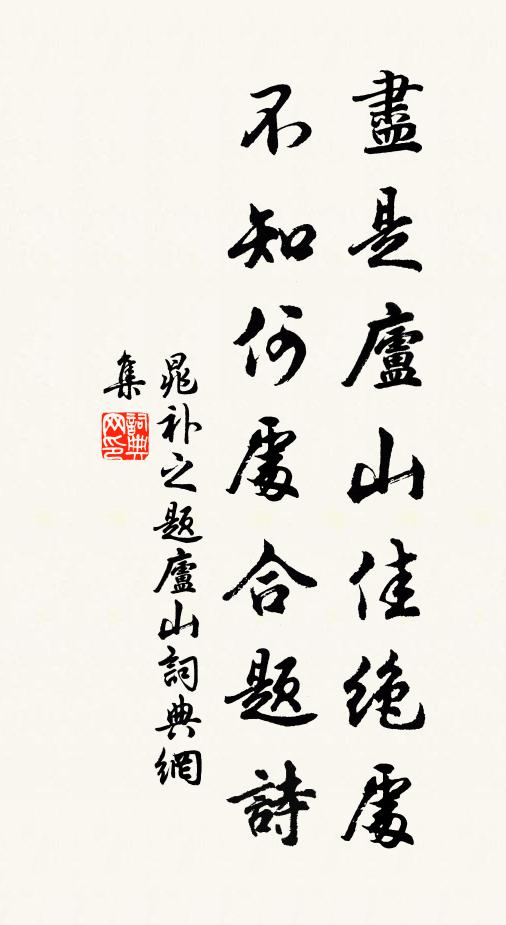 盡是廬山佳絶處
不知何處合題詩
晁补之题廬山詞典網
集
詞典
网印